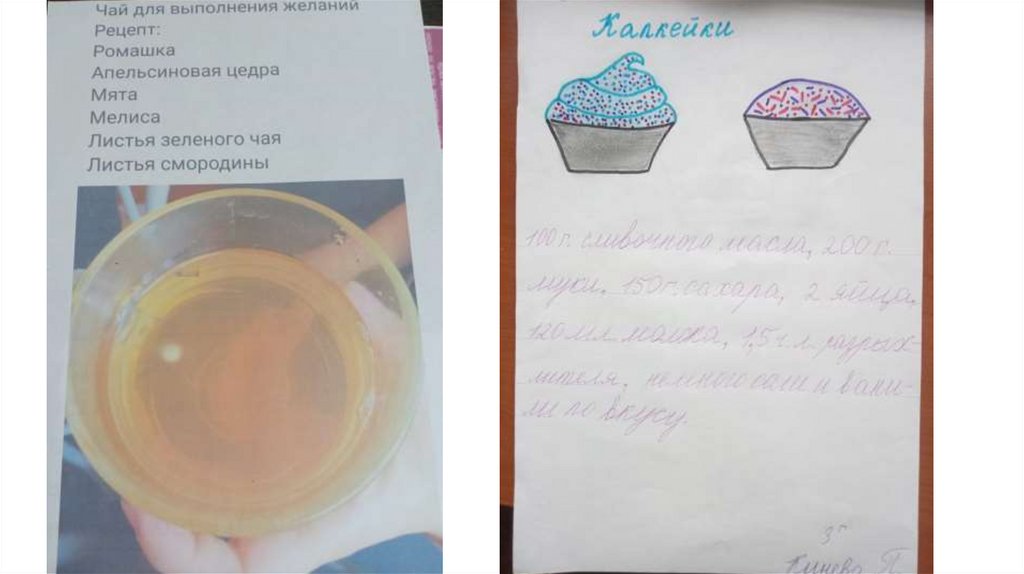 Чай для выполнения желаний
Рецепт:
Ромашка
Апельсиновая цедра
Мята
Мелиса
Листья зеленого чая
Листья смородины
Капкейки
100 г. сливочного масла, 200 г.
муки, 150 г. сахара, 2 яйца,
120 мл молока, 1,5 ч.л. разрых-
лителя, немного соли и вани-
ли по вкусу.
3г
П